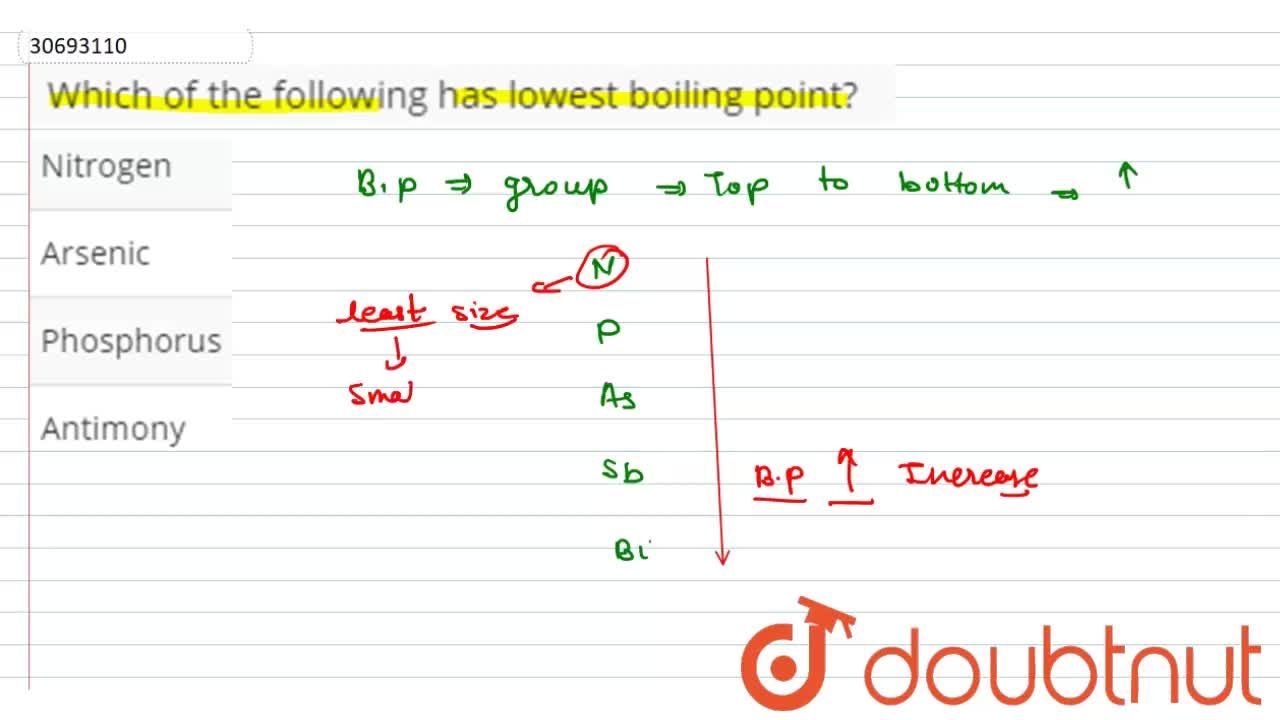 30693110
Which of the following has lowest boiling point?
Nitrogen
Arsenic
Phosphorus
Antimony
B.p ⇒ group ⇒ Top to bottom ⇒ ↑
N
least size
P
Smal
As
Sb
B.p ↑ Increase
Bi
doubtnut